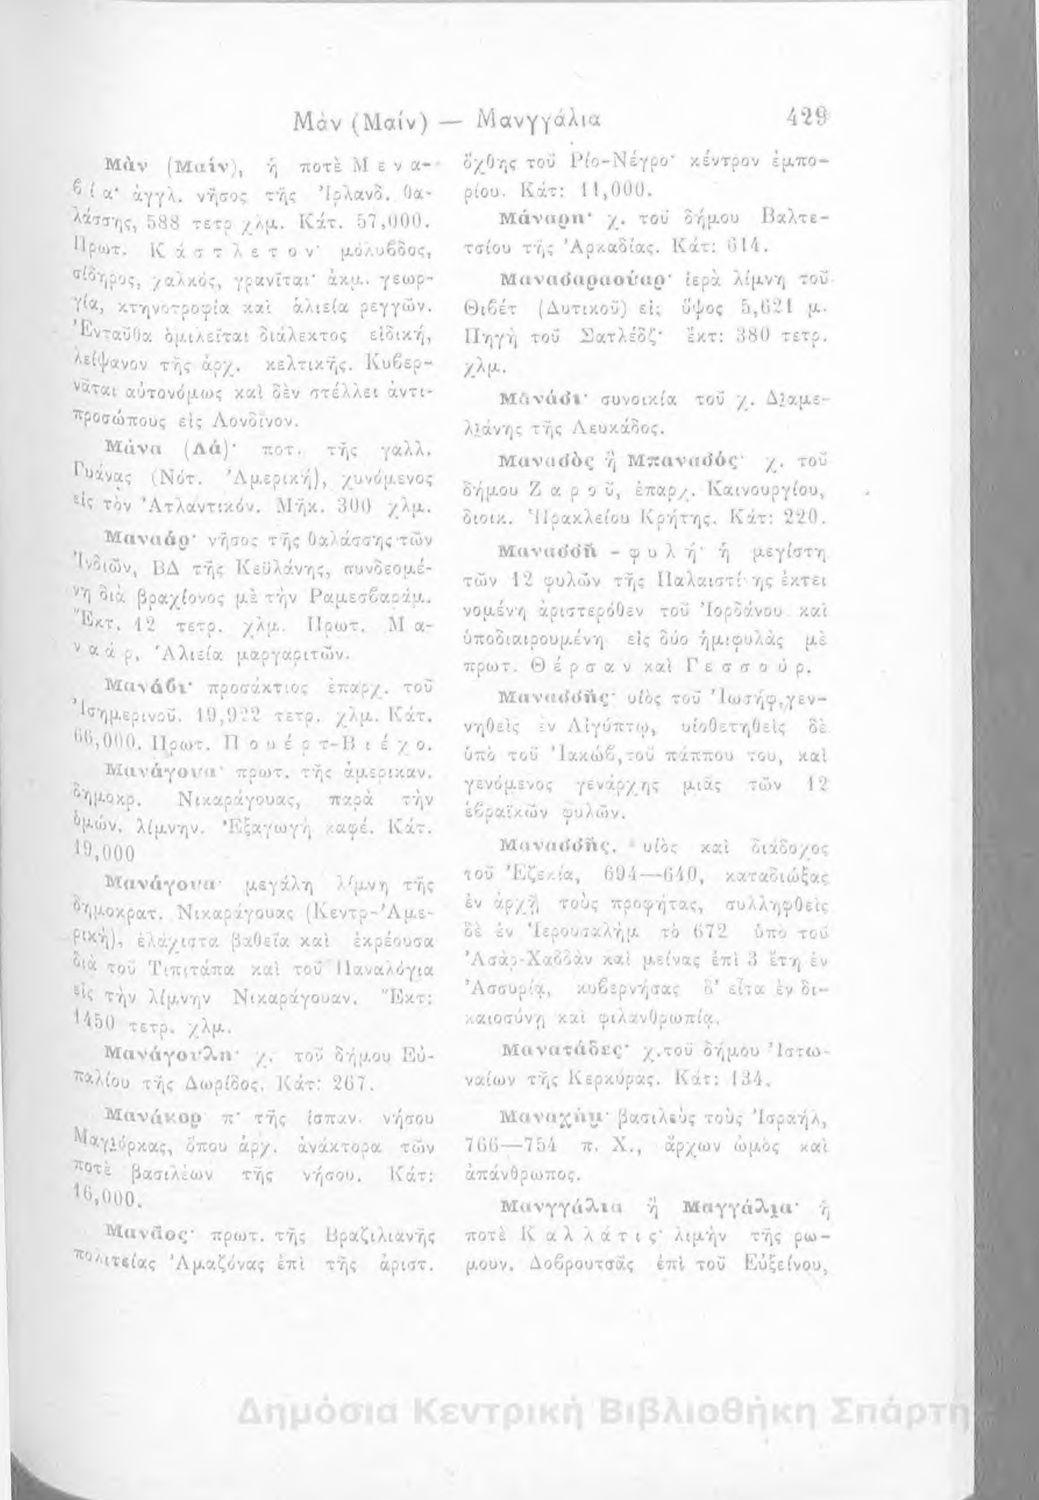 Μάν (Μαίν) — Μανγγάλια 429
Μὰν (Μαίν), ἡ ποτὲ Μενα-
βία· ἀγγλ. νῆσος τῆς Ἰρλανδ. θα-
λάσσης, 588 τετρ χλμ. Κάτ. 57,000.
Πρωτ. Κάστλετον· μόλυβδος,
σίδηρος, χαλκός, γρανῖται· ἀκμ. γεωρ-
γία, κτηνοτροφία καὶ ἁλιεία ρεγγῶν.
Ἐνταῦθα ὁμιλεῖται διάλεκτος εἰδική,
λείψανον τῆς ἀρχ. κελτικῆς. Κυβερ-
νᾶται αὐτονόμως καὶ δὲν στέλλει ἀντι-
προσώπους εἰς Λονδῖνον.
Μάνα (Λά)· ποτ. τῆς γαλλ.
Γυάνας (Νότ. Ἀμερική), χυνόμενος
εἰς τὸν Ἀτλαντικόν. Μῆκ. 300 χλμ.
Μαναάρ· νῆσος τῆς θαλάσσης τῶν
Ἰνδιῶν, ΒΔ τῆς Κεϋλάνης, συνδεομέ-
νη διὰ βραχίονος μὲ τὴν Ραμεσβαράμ.
Ἔκτ. 12 τετρ. χλμ. Πρωτ. Μα-
ναάρ, Ἁλιεία μαργαριτῶν.
Μανάβι· προσάκτιος ἐπαρχ. τοῦ
Ἰσημερινοῦ. 19,922 τετρ. χλμ. Κάτ.
66,000. Πρωτ. Πουέρτ-Βιέχο.
Μανάγουα· πρωτ. τῆς ἀμερικαν.
δημοκρ. Νικαράγουας, παρὰ τὴν
ὁμών. λίμνην. Ἐξαγωγὴ καφέ. Κάτ.
19,000
Μανάγουα· μεγάλη λίμνη τῆς
δημοκρατ. Νικαράγουας (Κεντρ-Ἀμε-
ρική), ἐλάχιστα βαθεῖα καὶ ἐκρέουσα
διὰ τοῦ Τιπιτάπα καὶ τοῦ Παναλόγια
εἰς τὴν λίμνην Νικαράγουαν. Ἔκτ:
1450 τετρ. χλμ.
Μανάγουλη· χ. τοῦ δήμου Εὐ-
παλίου τῆς Δωρίδος. Κάτ: 267.
Μανάκορ π· τῆς ἱσπαν. νήσου
Μαγιόρκας, ὅπου ἀρχ. ἀνάκτορα τῶν
ποτὲ βασιλέων τῆς νήσου. Κάτ:
16,000.
Μανᾶος· πρωτ. τῆς Βραζιλιανῆς
πολιτείας Ἀμαζόνας ἐπὶ τῆς ἀριστ.
ὄχθης τοῦ Ρίο-Νέγρο· κέντρον ἐμπο-
ρίου. Κάτ: 11,000.
Μάναρη· χ. τοῦ δήμου Βαλτε-
τσίου τῆς Ἀρκαδίας. Κάτ: 614.
Μανασαραουάρ· ἱερὰ λίμνη τοῦ
Θιβέτ (Δυτικοῦ) εἰς ὕψος 5,621 μ.
Πηγὴ τοῦ Σατλέδζ· ἔκτ: 380 τετρ.
χλμ.
Μανάσι· συνοικία τοῦ χ. Διαμε-
λιάνης τῆς Λευκάδος.
Μανασὸς ἢ Μπανασός· χ. τοῦ
δήμου Ζαροῦ, ἐπαρχ. Καινουργίου,
διοικ. Ἡρακλείου Κρήτης. Κάτ: 220.
Μανασσῆ - φυλή· ἡ μεγίστη
τῶν 12 φυλῶν τῆς Παλαιστίνης ἐκτει
νομένη ἀριστερόθεν τοῦ Ἰορδάνου καὶ
ὑποδιαιρουμένη εἰς δύο ἡμιφυλὰς μὲ
πρωτ. Θέρσαν καὶ Γεσσούρ.
Μανασσῆς· υἱὸς τοῦ Ἰωσήφ,γεν-
νηθεὶς ἐν Αἰγύπτῳ, υἱοθετηθεὶς δὲ
ὑπὸ τοῦ Ἰακώβ,τοῦ πάππου του, καὶ
γενόμενος γενάρχης μιᾶς τῶν 12
ἑβραϊκῶν φυλῶν.
Μανασσῆς, υἱὸς καὶ διάδοχος
τοῦ Ἐζεκία, 694—640, καταδιώξας
ἐν ἀρχῇ τοὺς προφήτας, συλληφθεὶς
δὲ ἐν Ἱερουσαλὴμ τὸ 672 ὑπὸ τοῦ
Ἀσάρ-Χαδδὰν καὶ μείνας ἐπὶ 3 ἔτη ἐν
Ἀσσυρίᾳ, κυβερνήσας δ' εἶτα ἐν δι-
καιοσύνῃ καὶ φιλανθρωπίᾳ.
Μανατάδες· χ.τοῦ δήμου Ἰστω-
ναίων τῆς Κερκύρας. Κάτ: 134.
Μαναχήμ· βασιλεὺς τοὺς Ἰσραήλ,
766—754 π. Χ., ἄρχων ὠμὸς καὶ
ἀπάνθρωπος.
Μανγγάλια ἢ Μαγγάλια· ἡ
ποτὲ Κάλλατις· λιμὴν τῆς ρω-
μουν. Δοβρουτσᾶς ἐπὶ τοῦ Εὐξείνου,
Δημόσια Κεντρική Βιβλιοθήκη Σπάρτη